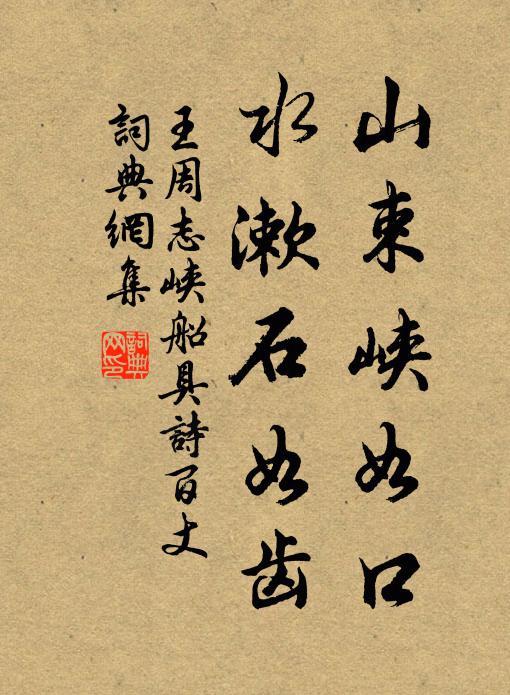 山束峡如口
水漱石如齿
王周志峽船具詩百丈
詞典網集
詞典网印